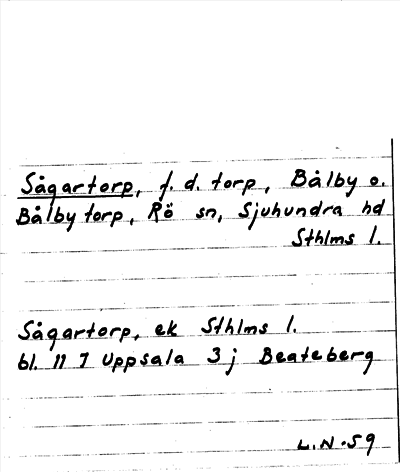 Sågartorp, f. d. torp, Bålby o.
Bålby torp, Rö sn, Sjuhundra hd
Sthlms l.
Sågartorp, ek Sthlms l.
bl. 11 I Uppsala 3 j Beateberg
L.N. 59